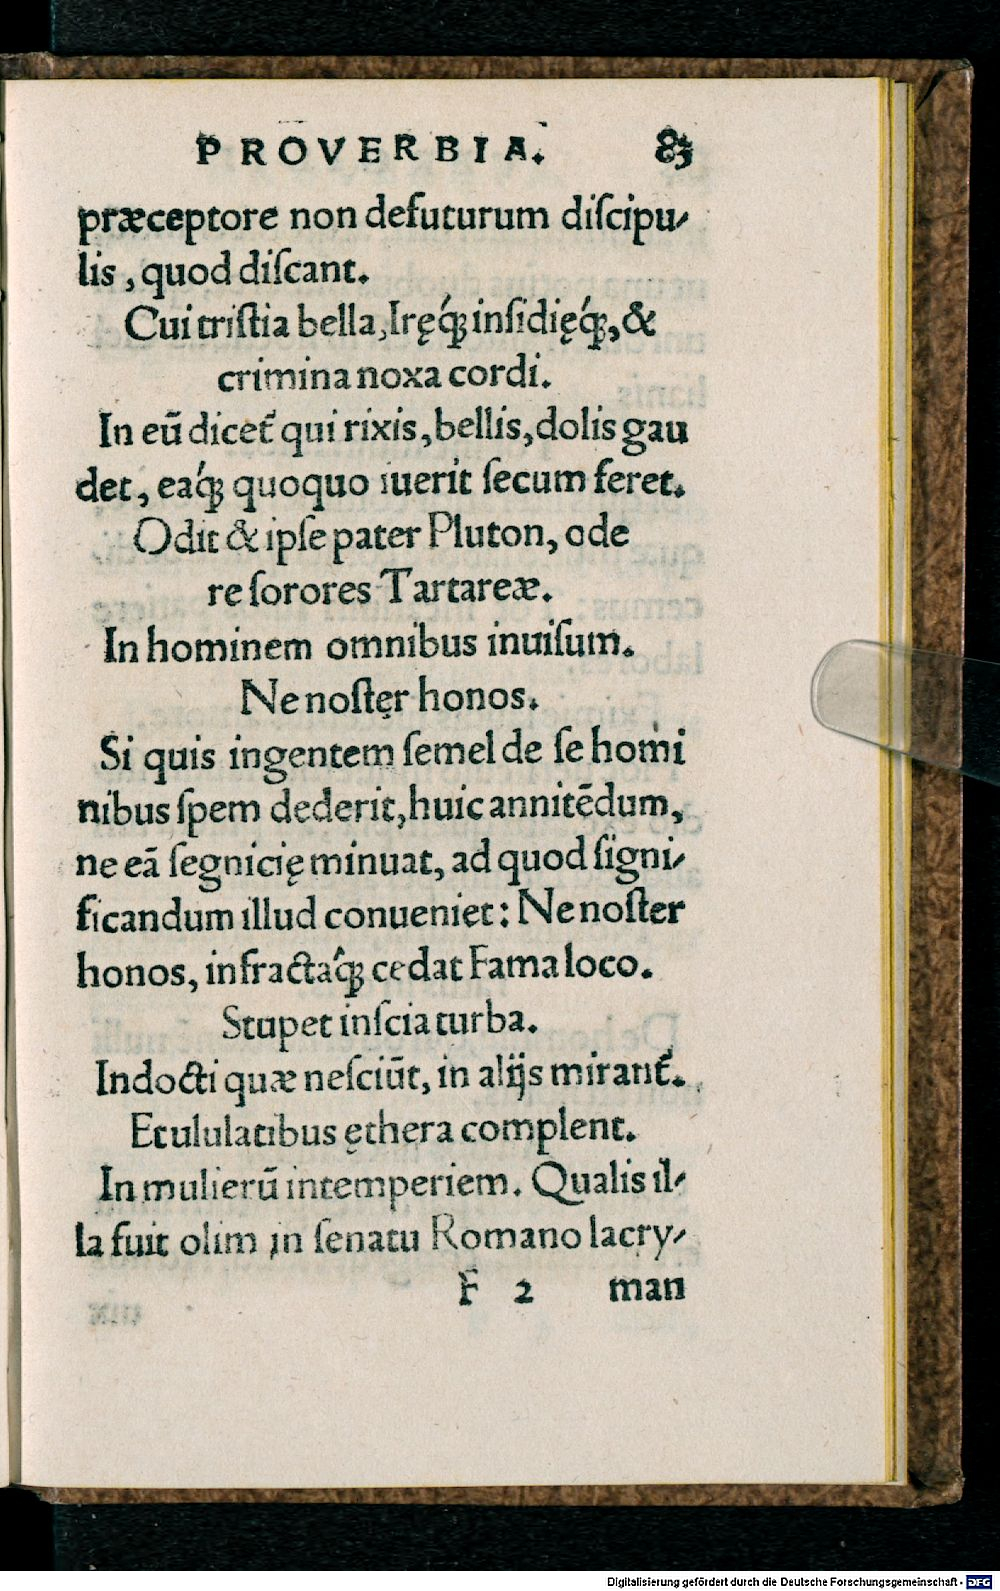 PROVERBIA. 83
præceptore non defuturum diſcipu⸗
lis, quod diſcant.
Cui triſtia bella, Iręq́; inſidięq́;, &
crimina noxa cordi.
In eū dicet᷑ qui rixis, bellis, dolis gau
det, eaq́; quoquo iuerit ſecum feret.
Odit & ipſe pater Pluton, ode
re ſorores Tartareæ.
In hominem omnibus inuiſum.
Ne noſtęr honos.
Si quis ingentem ſemel de ſe homi
nibus ſpem dederit, huic annitēdum,
ne eā ſegnicię minuat, ad quod ſigni⸗
ficandum illud conueniet: Ne noſter
honos, infractaq́; cedat Fama loco.
Stupet inſcia turba.
Indocti quæ neſciūt, in alijs mirant᷑.
Et ululatibus ęthera complent.
In mulierū intemperiem. Qualis il⸗
la fuit olim in ſenatu Romano lacry⸗
F 2 man
Digitalisierung gefördert durch die Deutsche Forschungsgemeinschaft - DFG